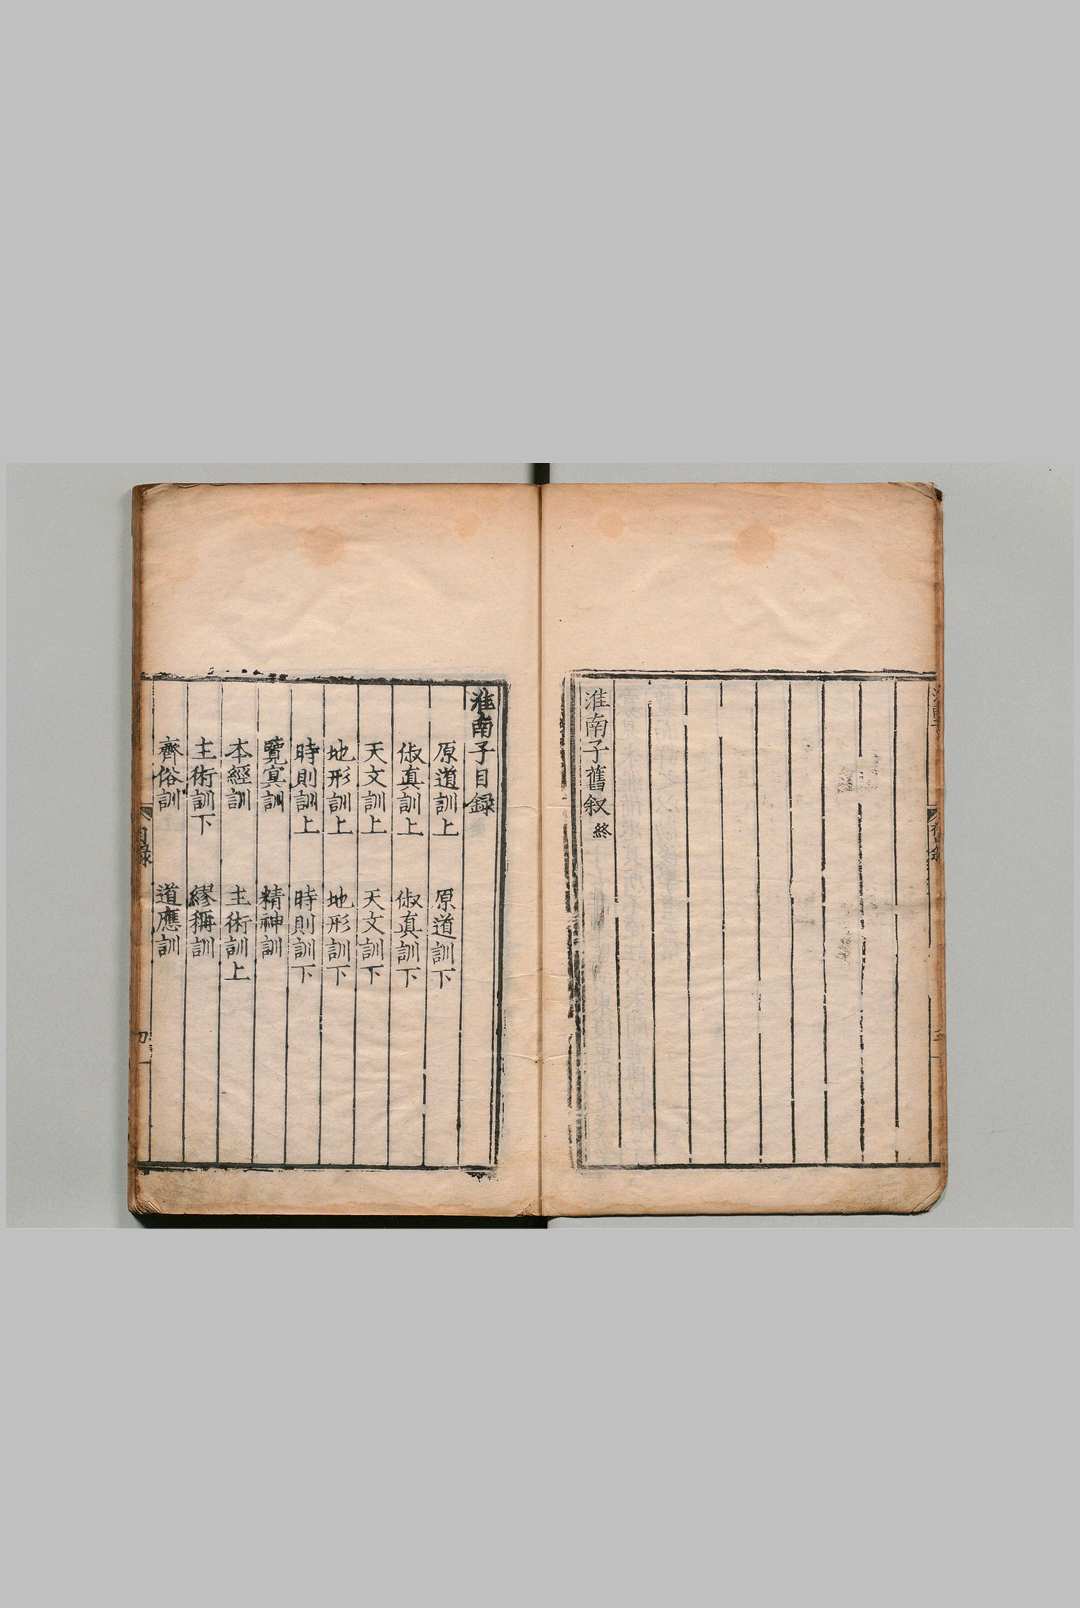 淮南子舊叙終
淮南子目録
原道訓上 原道訓下
俶真訓上 俶真訓下
天文訓上 天文訓下
地形訓上 地形訓下
時則訓上 時則訓下
覽冥訓 精神訓
本經訓 主術訓上
主術訓下 繆稱訓
齊俗訓 道應訓
目録